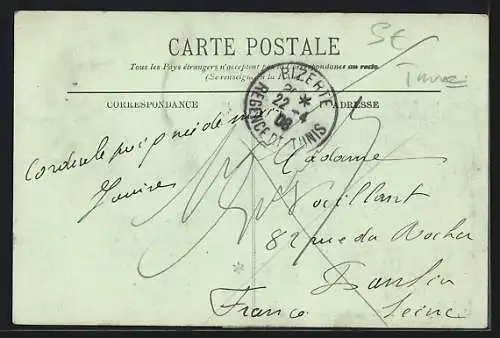 CARTE POSTALE
Tous les Pays étrangers n'acceptent pas la correspondance au recto
(Se renseigner à la
CORRESPONDANCE
ADRESSE
BIZERTE
22 - 4
08
REGENCE DE TUNIS
Cordiale poignée de main
Louise
Madame
Vaillant
82 rue du Rocher
Seine
France